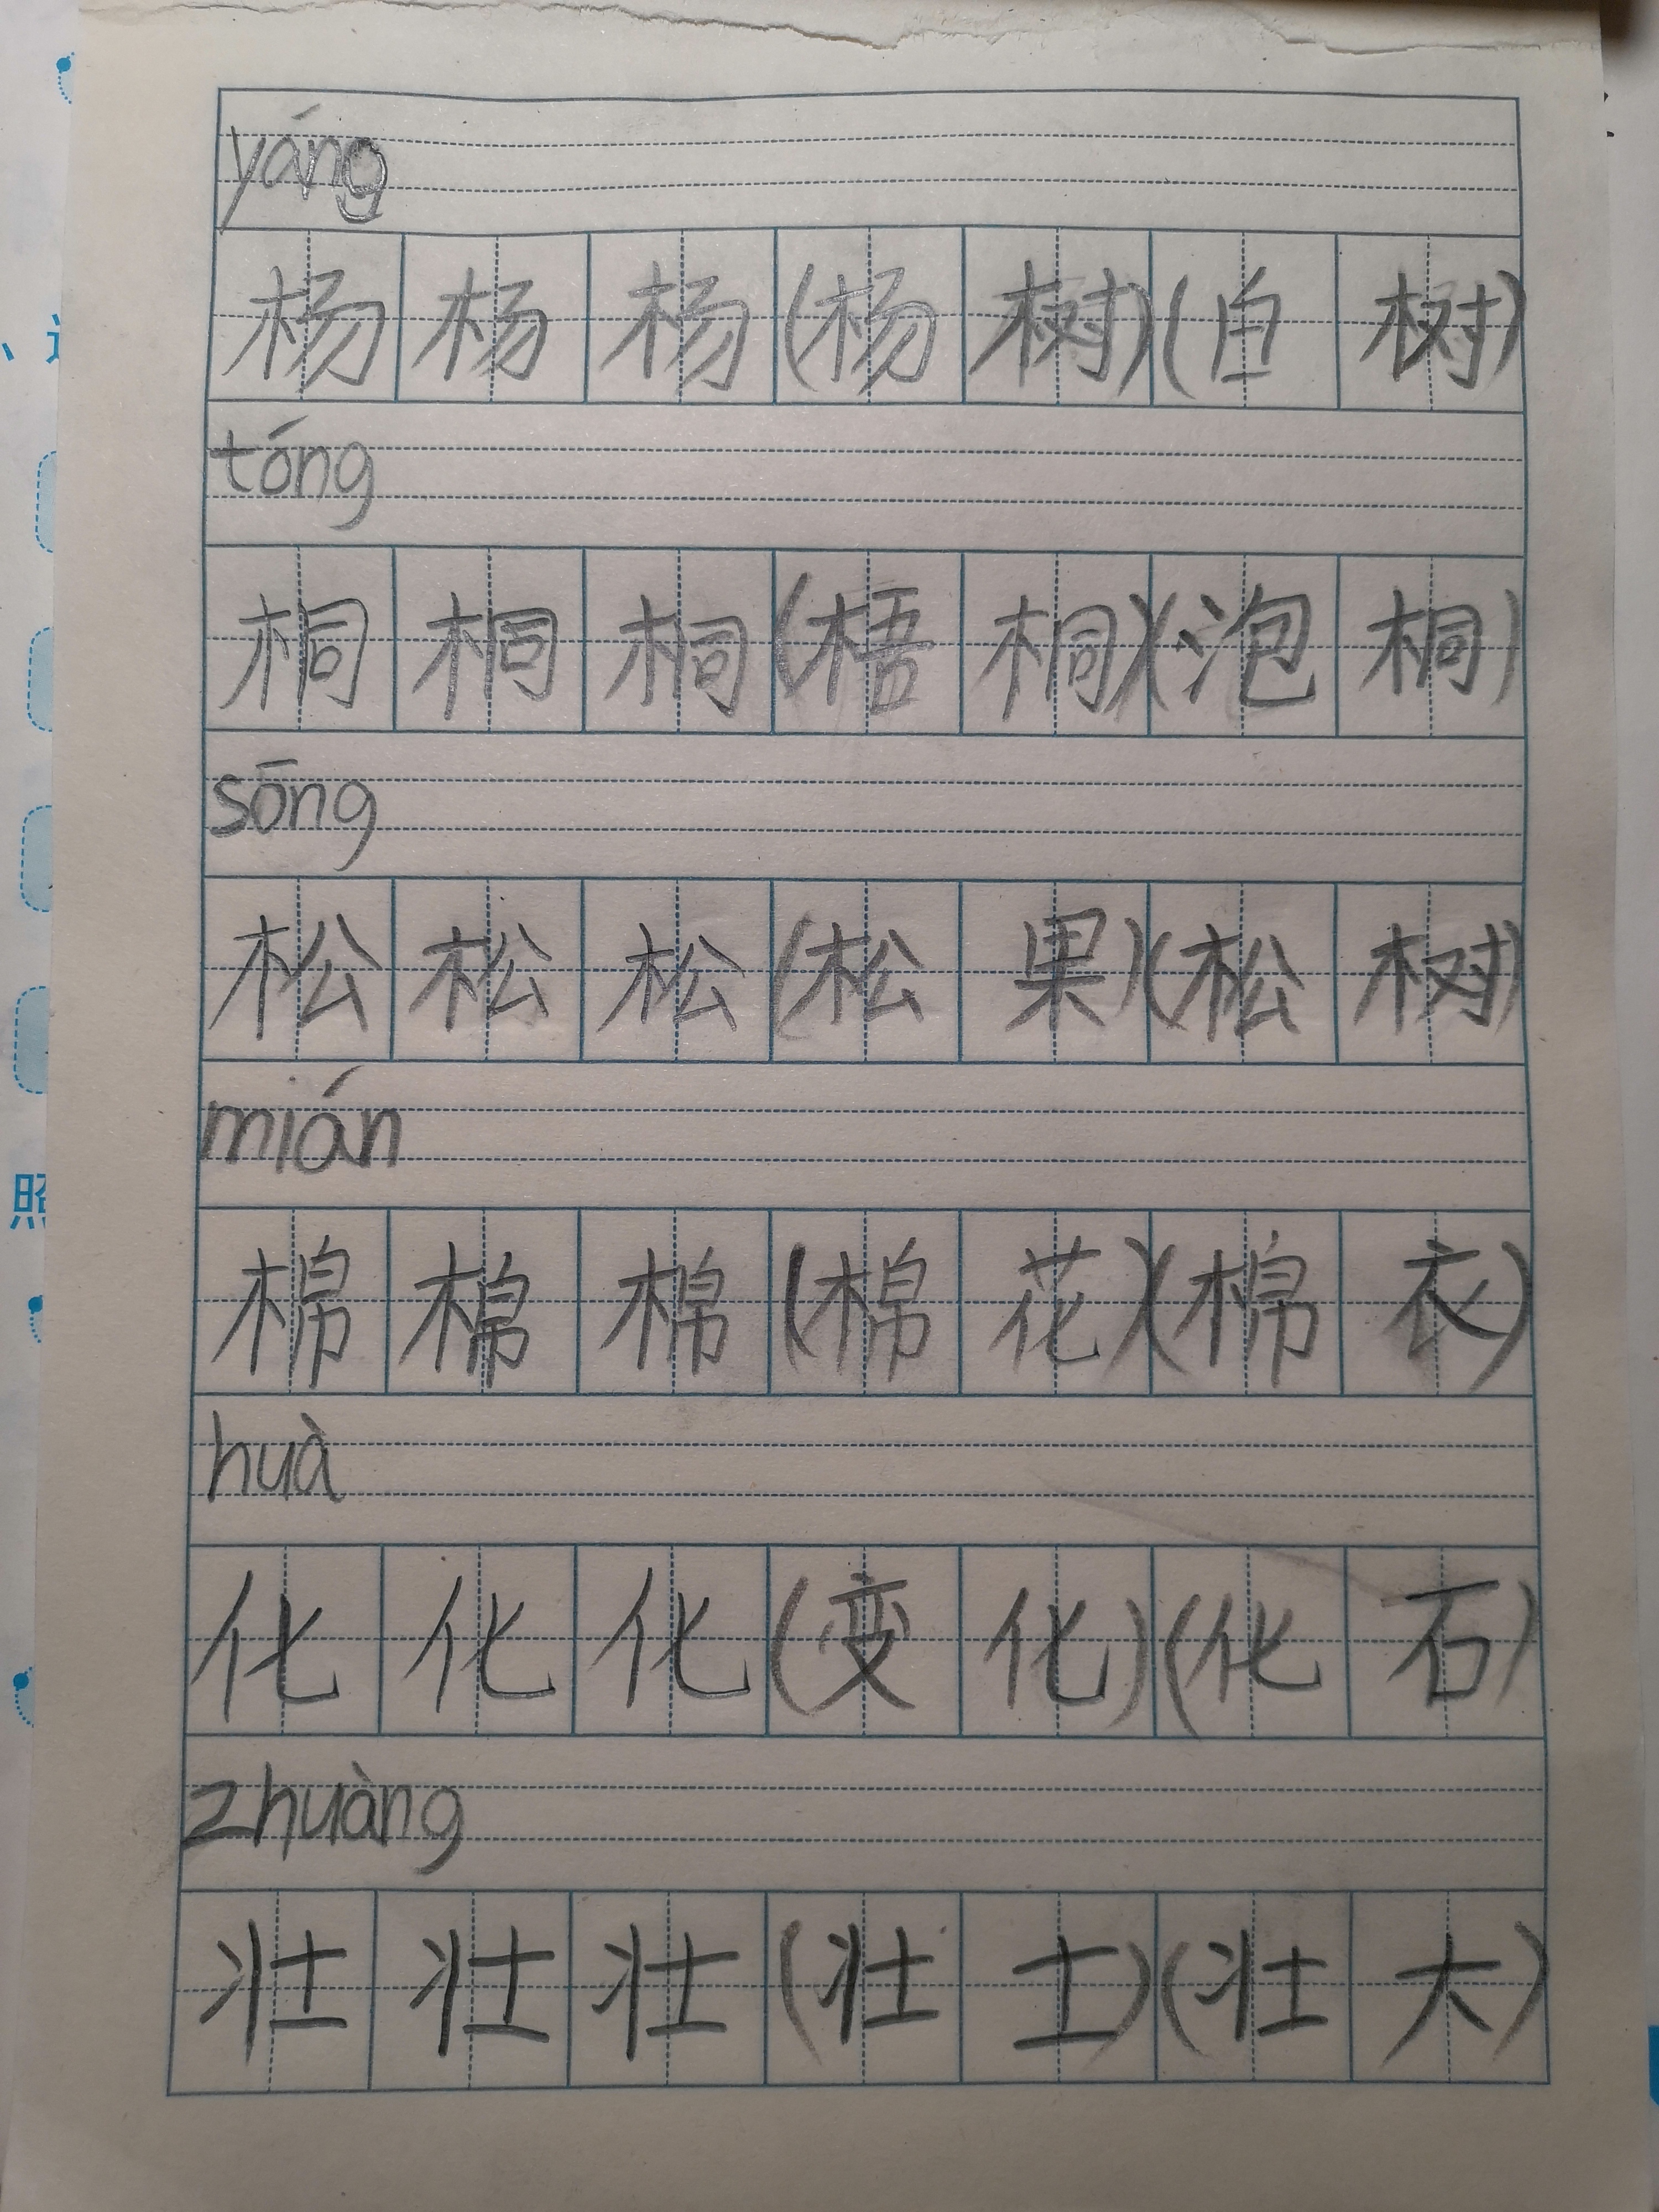 yáng
杨 杨 杨 (杨 树) (白 树)
tóng
桐 桐 桐 (梧 桐) (泡 桐)
sōng
松 松 松 (松 果) (松 树)
mián
棉 棉 棉 (棉 花) (棉 衣)
huà
化 化 化 (变 化) (化 石)
zhuàng
壮 壮 壮 (壮 士) (壮 大)
照